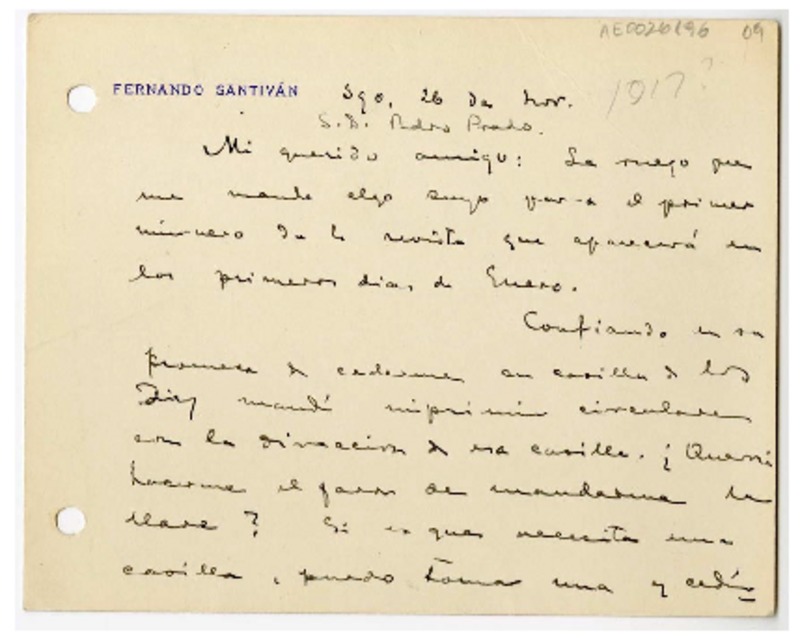 AE0026196 09
FERNANDO SANTIVÁN Sgo, 26 de Nov. 1917?
S. D. Pedro Prado.
Mi querido amigo: Le ruego que
me mande algo suyo para el primer
número de la revista que aparecerá en
los primeros dias de Enero.
Confiando en su
promesa de cederme su casilla de los
Diez mandé imprimir circulares
con la direccion de esa casilla. ¿Querrá
hacerme el favor de mandarme la
llave? Si es que necesita una
casilla, puedo tomar una y cedér